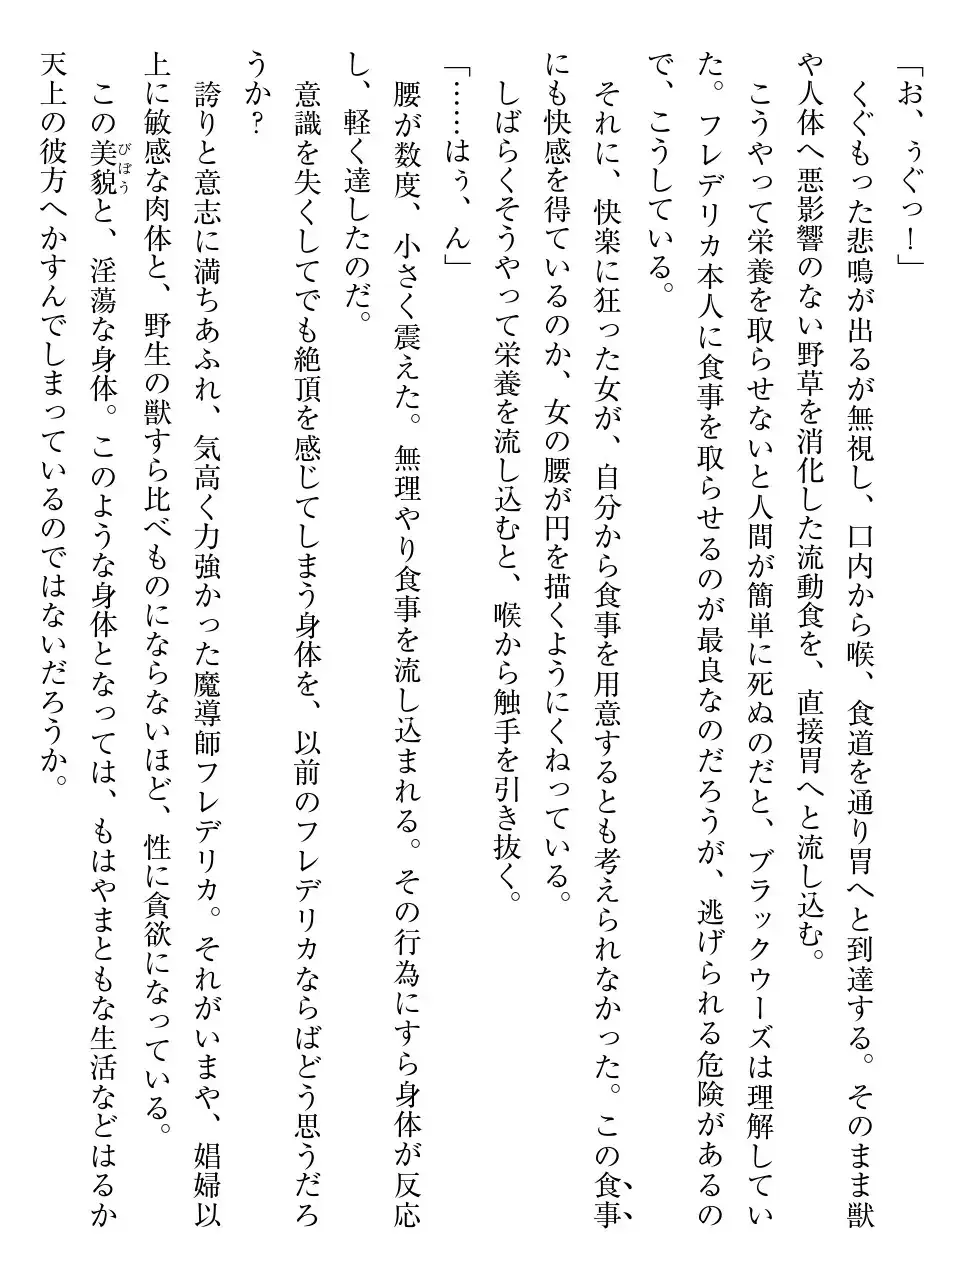 「お、ぅぐっ！」
　くぐもった悲鳴が出るが無視し、口内から喉、食道を通り胃へと到達する。そのまま獣
や人体へ悪影響のない野草を消化した流動食を、直接胃へと流し込む。
　こうやって栄養を取らせないと人間が簡単に死ぬのだと、ブラックウーズは理解してい
た。フレデリカ本人に食事を取らせるのが最良なのだろうが、逃げられる危険があるの
で、こうしている。
　それに、快楽に狂った女が、自分から食事を用意するとも考えられなかった。この食事
にも快感を得ているのか、女の腰が円を描くようにくねっている。
　しばらくそうやって栄養を流し込むと、喉から触手を引き抜く。
「……はぅ、ん」
　腰が数度、小さく震えた。無理やり食事を流し込まれる。その行為にすら身体が反応
し、軽く達したのだ。
　意識を失くしてでも絶頂を感じてしまう身体を、以前のフレデリカならばどう思うだろ
うか？
　誇りと意志に満ちあふれ、気高く力強かった魔導師フレデリカ。それがいまや、娼婦以
上に敏感な肉体と、野生の獣すら比べものにならないほど、性に貪欲になっている。
　この美貌びぼうと、淫蕩な身体。このような身体となっては、もはやまともな生活などはるか
天上の彼方へかすんでしまっているのではないだろうか。